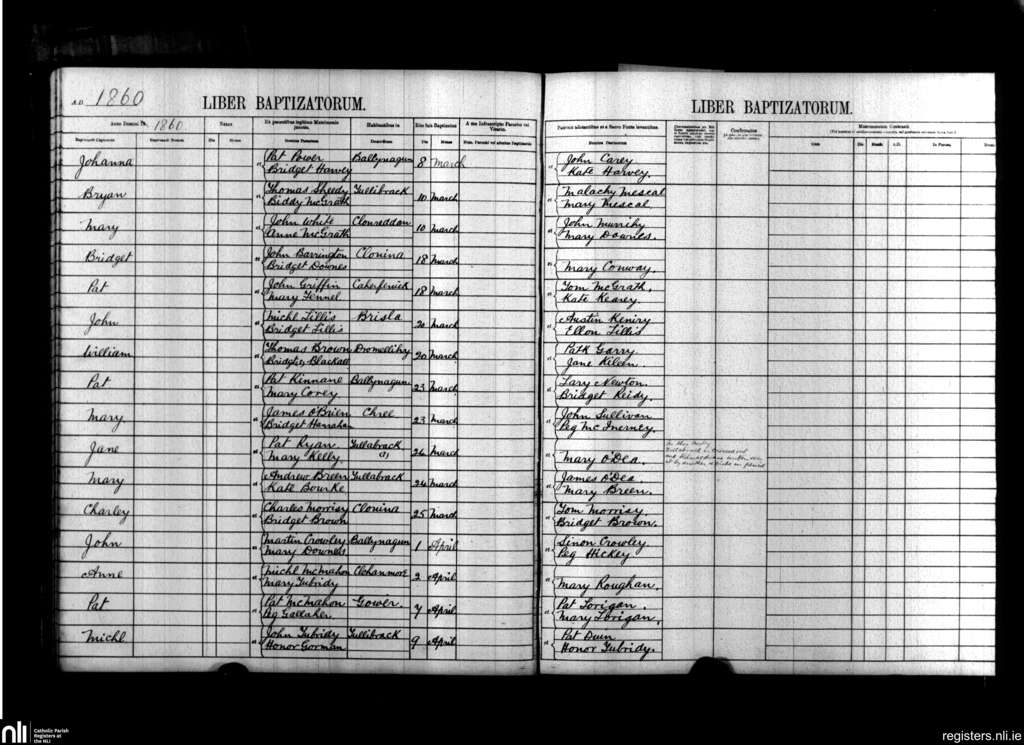 A.D. 1860
LIBER BAPTIZATORUM.
Anno Domini 18 1860
Natus
Ex parentibus legitimo Matrimonio junctis.
Habitantibus in
Rite fuit Baptizatus
A me Infrascripto Parocho vel Vicario.
Baptizandi Cognomen
Baptizandi Nomen.
Die
Mense
Nomina Parentum
Die
Mense
Nom. Parochi vel alterius Baptizantis
Johanna
Pat Power Ballynagun 8 March
Bridget Harvey
Bryan
Thomas Sheedy Tullibrack 10 March
Biddy McGrath
Mary
John White Clonreddan 10 March
Anne McGrath
Bridget
John Barrington Clonina 18 March
Bridget Downes
Pat
John Griffin 18 March
Mary Finnel
John
Michl Lillis Brisla 20 March
Bridget Lillis
William
Thomas Brown Dromellihy 20 March
Blackall
Pat
Pat Kinnane Ballynagun 23 March
Mary Corey
Mary
James O'Brien Chree 23 March
Bridget Hanrahan
Jane
Pat Ryan Tullabrack 24 March
Mary Kelly
Mary
Andrew Breen Tullabrack 24 March
Kate Bourke
Charley
Charles Morrisy Clonina 25 March
Bridget Brown
John
Martin Crowley Ballynagun 1 April
Mary Downes
Anne
Michl McMahon Clohanmore 2 April
Mary Tubridy
Pat
Pat McMahon Gower. 7 April
Peg Gallaher
Michl
John Tubridy Tullibrack 9 April
Honor Gorman
LIBER BAPTIZATORUM.
Patrinis adstantibus et a Sacro Fonte levantibus.
Confirmatus
Matrimonium Contraxit
Nomina Patrinorum
Cum
Die
Mensis
A.D.
In Paroec.
John Carey
Kate Harvey.
Malachy Mescal
Mary Mescal
John Murrihy
Mary Downes.
Mary Conway.
Tom McGrath.
Kate Kearey.
Austin Keniry
Ellon Lillis
Patk Garry
Jane Kileen.
Lary Newton.
Bridget Reidy.
John Sullivan
Peg McInerney.
Mary O'Dea.
James O'Dea.
Mary Breen.
Tom Morrisy.
Bridget Brown.
Sinon Crowley
Peg Hickey
Mary Roughan.
Pat Lorigan.
Mary Lorigan.
Pat Dunn
Honor Tubridy.
nli
Catholic Parish
Registers at
the NLI
registers.nli.ie